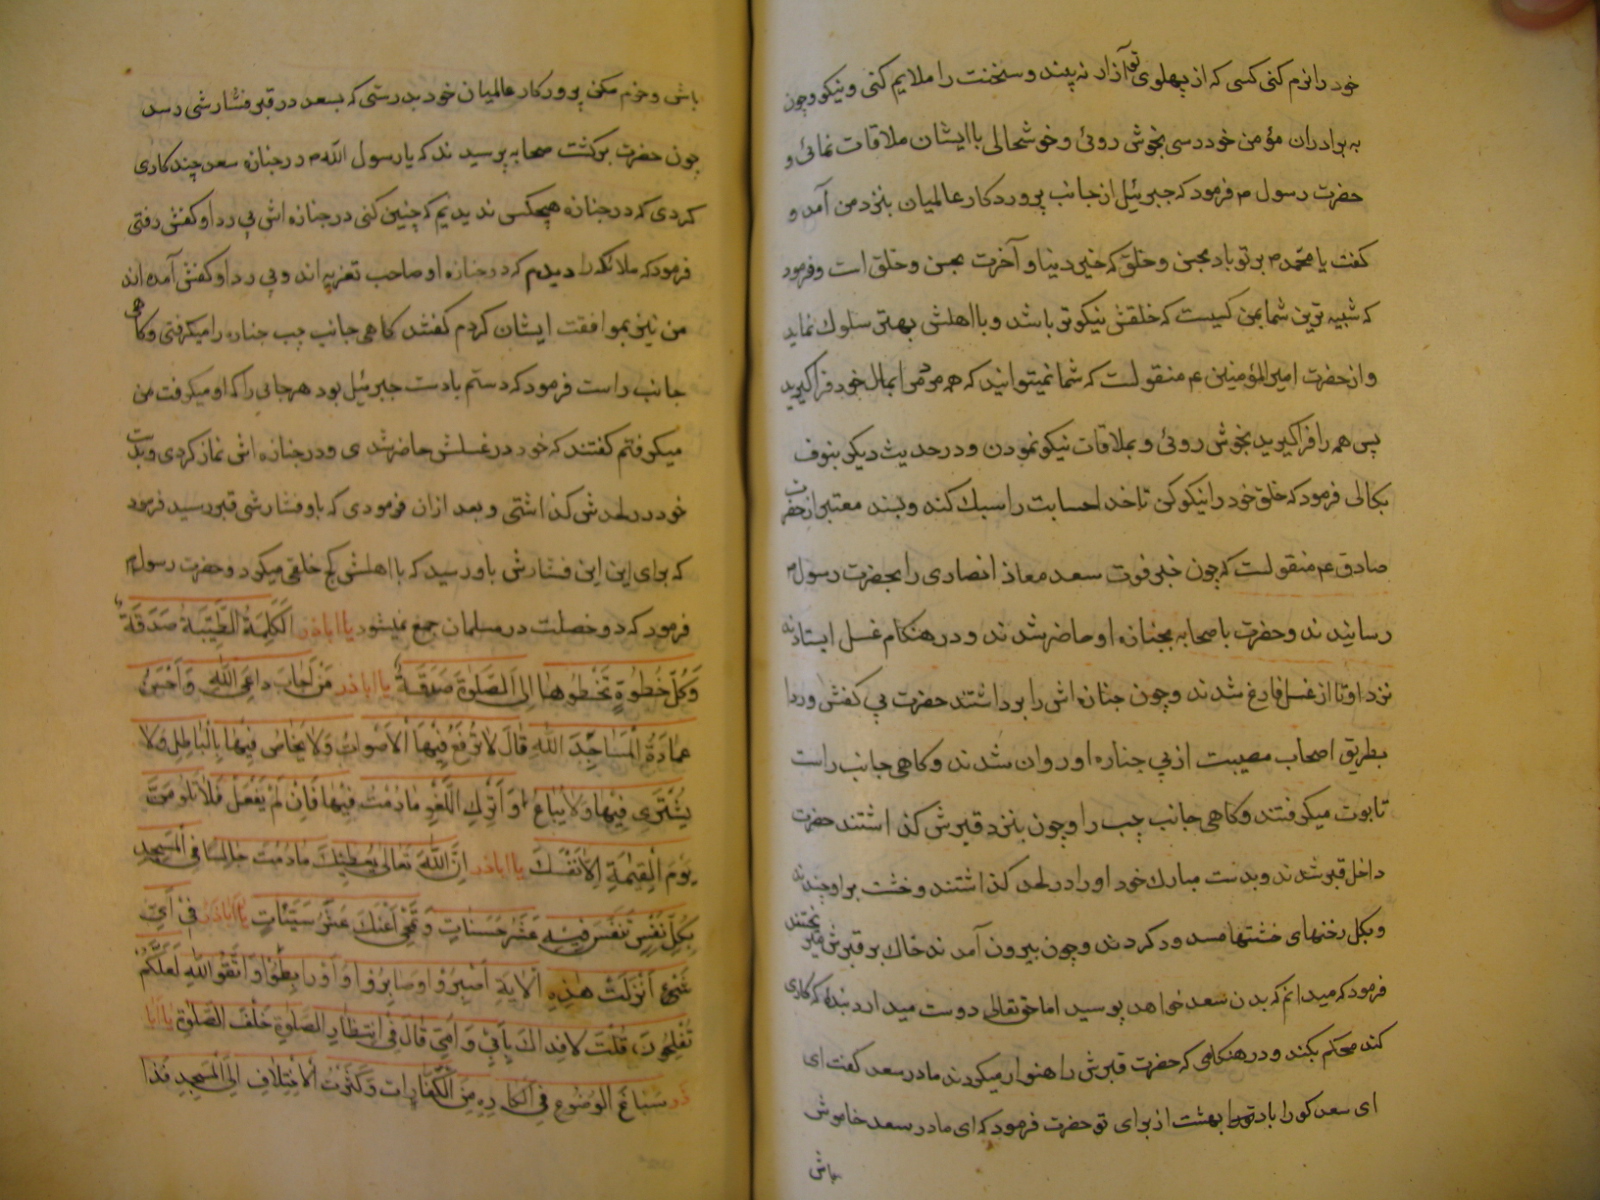 خود را نرم کنی کسی که از پهلوی تو آزار نه بیند و سخنت را ملایم کنی و نیکو و چون
به برادران مؤمن خود رسی بخوش روئی و خوشحالی با ایشان ملاقات نمائی و
حضرت رسول م فرمود که جبرئیل از جانب پروردکار عالمیان بنزد من آمد و
کفت یا محمد م بر تو باد بحسن و خلق که خیر دینا و آخرت بحسن و خلق است و فرمود
که شبیه ترین شما بمن کسیست که خلقش نیکوتر باشد و با اهلش بهتر سلوک نماید
و از حضرت امیرالمؤمنین ع منقولست که شما نمیتوانید که همه مردم را بمال خود فراکیرید
پس همه را فراکیرید بخوش روئی و بملاقات نیکو نمودن و در حدیث دیکر بنوف
بکالی فرمود که خلق خود را نیکو کن تا خدا حسابت را سبک کند و بسند معتبر از حضرت
صادق ع منقولست که چون خبر فوت سعد معاذ انصاری را بحضرت رسول م
رسانیدند و حضرت با صحابه بجنازه او حاضر شدند و در هنکام غسل ایستادند
نزد او تا از غسل فارغ شدند و چون جنازه اش را برداشتند حضرت بی کفش و ردا
بطریق اصحاب مصیبت از پی جنازه او روان شدند و کاهی جانب راست
تابوت میکرفتند و کاهی جانب چپ را و چون بنزد قبرش کذاشتند حضرت
داخل قبر شدند و بدست مبارک خود او را در لحد کذاشتند و خشت بر او چیدند
و بکل رخنهای خشتها مسدود کردند و چون بیرون آمدند خاک بر قبرش
فرمود که میدانم که بدن سعد خواهد پوسید اما حق تعالی دوست میدارد بنده که کاری
کند محکم بکند و در هنکامی که حضرت قبرش را هنوار میکردند مادر سعد کفت ای
ای سعد کورا باد ترا بهشت از برای تو حضرت فرمود که ای مادر سعد خاموش
باش
باش و جزم مکن بپروردکار عالمیان خود بدرستی که بسعد در قبر فشارشی رسد
چون حضرت برکشت صحابه پرسیدند که یا رسول الله م در جنازه سعد چند کاری
کردی که در جنازه هیچکس ندیدیم که چنین کنی در جنازه اش بی ردا و کفش رفتی
فرمود که ملائکه را دیدم که در جنازه او صاحب تعزیه اند و بی ردا و کفش آمده اند
من نیز بموافقت ایشان کردم کفتند کاهی جانب چپ جنازه را میکرفتی و کاهی
جانب راست فرمود که دستم بادست جبرئیل بود هر جانی را که او میکرفت من
میکرفتم کفتند که خود در غسلش حاضر شدی و در جنازه اش نماز کردی و بدست
خود در لحدش کذاشتی و بعد ازان فرمودی که باو فشارشی قبر رسید فرمود
که برای این این فشارش باو رسید که با اهلش کج خلقی میکرد و حضرت رسول م
فرمود که دو خصلت در مسلمان جمع نمیشود یا اباذر الکلمة الطیبة صدقة
وکل خطوة تخطوها الی الصلوة صدقة یا اباذر من اجاب داعی الله واحسن
عمارة المساجد الله قال لا ترفع فیها الاصوات ولا یخاض فیها بالباطل ولا
یشتری فیها ولا یباع واترک اللغو مادمت فیها فان لم یفعل فلا تلومن
یوم القیمة الا نفسک یا اباذر ان الله تعالی یعطیک مادمت جالسا فی المسجد
بکل نفس تنفس فیه عشر حسنات وتمحی عنک عشر سیئات یا اباذر فی ای
شیء انزلت هذه الایة اصبروا وصابروا ورابطوا واتقوا الله لعلکم
تفلحون قلت لا فداک بابی وامی قال فی انتظار الصلوة خلف الصلوة یا ابا
ذر سباغ الوضوء فی المکاره من الکفارات وکثرت الاختلاف الی المسجد فذا